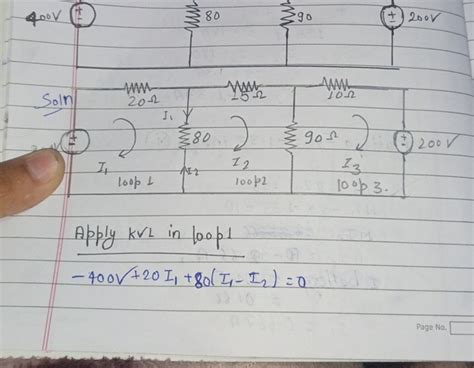 400V 80 90 200V
Soln 20Ω 15Ω 10Ω
I₁
80 90Ω 200V
I₁ I₂ I₃
loop 1 I₂ loop2 loop 3.
Apply KVL in loop1
-400V+20I₁+80(I₁-I₂)=0
Page No.